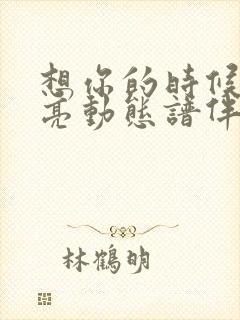 想你的時候
亮動態譜伴
林鶴明